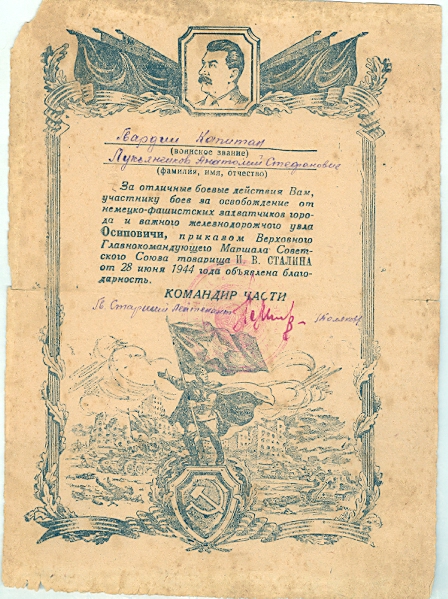 Гвардии Капитан
(воинское звание)
Лукьяненков Анатолий Стефанович
(фамилия, имя, отчество)
За отличные боевые действия Вам,
участнику боев за освобождение от
немецко-фашистских захватчиков горо-
да и важного железнодорожного узла
Осиповичи, приказом Верховного
Главнокомандующего Маршала Совет-
ского Союза товарища И. В. СТАЛИНА
от 28 июня 1944 года объявлена благо-
дарность.
КОМАНДИР ЧАСТИ
Гв. Старший Лейтенант